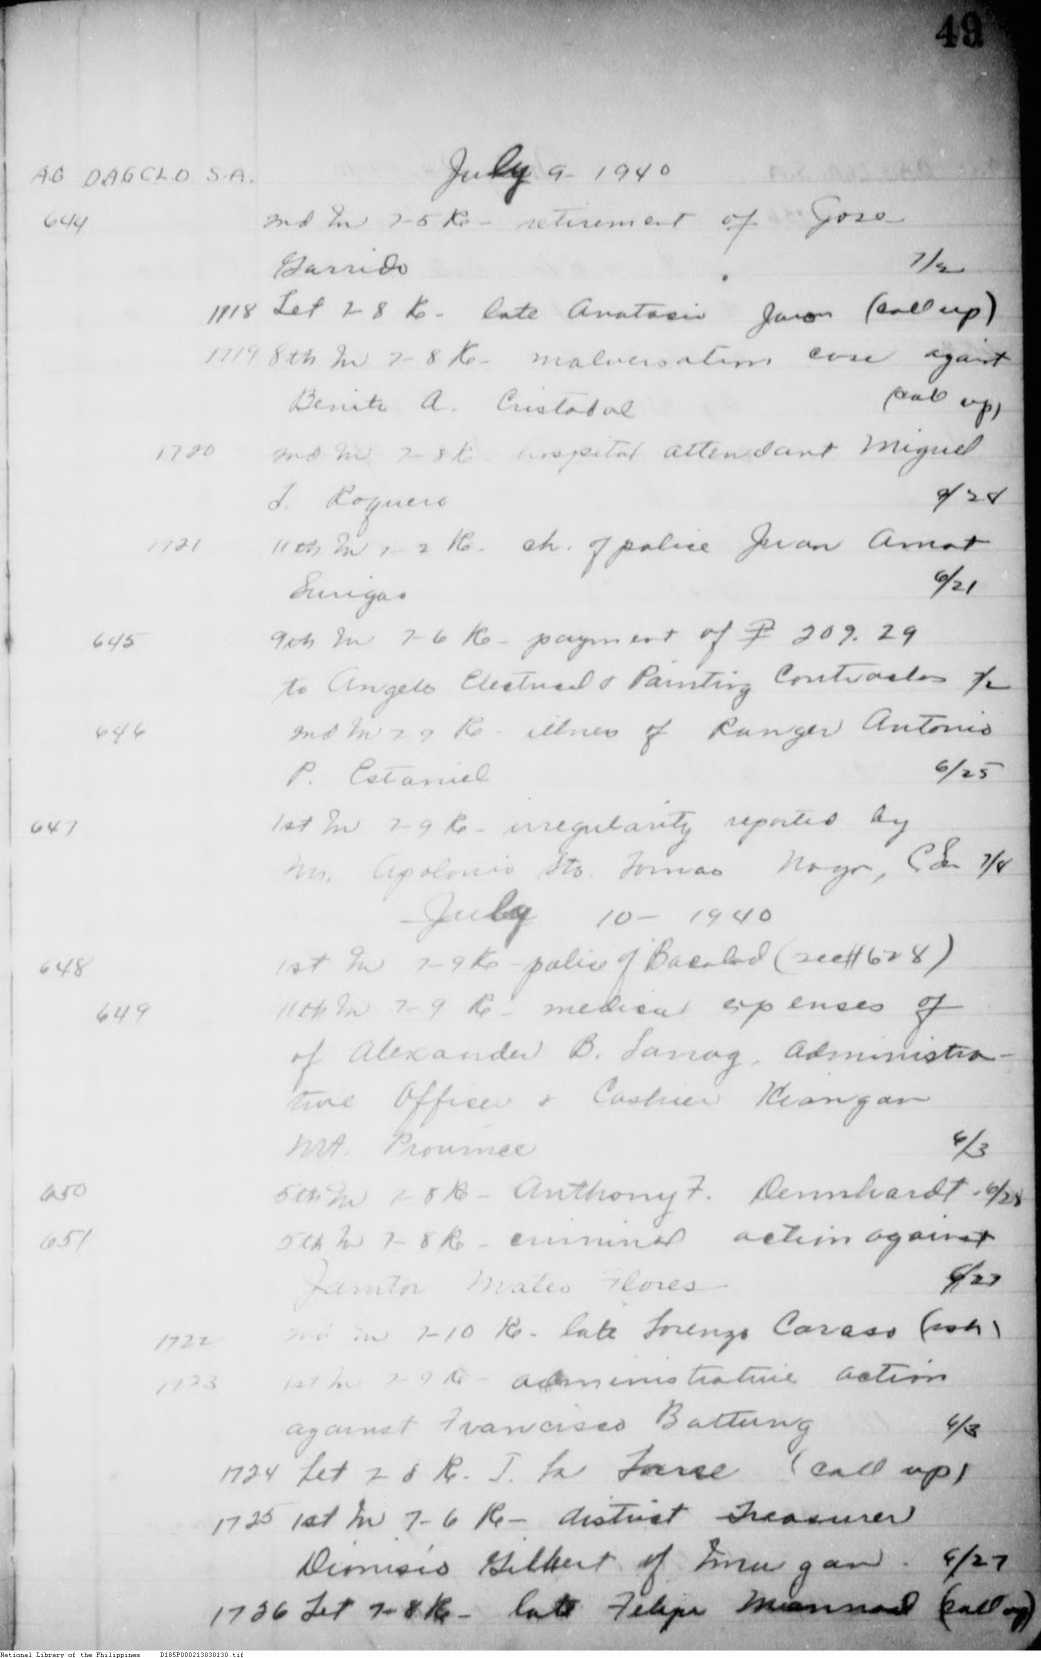 49
AG DAGCLO S.A. July 9 - 1940
644 2nd In 7-5 Re - retirement of Goro
Garrido 7/2
1718 Let 7-8 Re - late Anatacio (call up)
1719 8th In 7-8 Re - malversation case against
Benito A. Cristobal (call up)
1720 2nd In 7-8 Re hospital attendant Miguel
Roquero
1721 11th In 7-2 Re - ch. of police Juan Amat
Surigao 6/21
645 9th In 7-6 Re - payment of ₱ 209.29
to Angelo Electrical & Painting Contractor
646 2nd In 7-9 Re - illness of Ranger Antonio
P. Estaniel 6/25
647 1st In 7-9 Re - irregularity reported by
Mr. Apolonio Sto. Tomas Naga, 7/8
July 10 - 1940
648 1st In 7-9 Re - police of Bacolod (see #628)
649 11th In 7-9 Re - medical expenses of
of Alexander B. Administra-
tive Officer & Cashier Kiangan
Mt. Province 6/3
650 5th In 7-8 Re - Anthony F. Dennhardt - 6/28
651 5th In 7-8 Re - criminal action against
Janitor Mateo Flores 6/27
1722 2nd In 7-10 Re - late Lorenzo Caraso
1723 1st In 7-9 Re - administrative action
against Francisco Battung 6/3
1724 Let 7-8 Re - (call up)
1725 1st In 7-6 Re - district treasurer
Dionisio Gilbert of Imugan - 6/27
1726 Let 7-8 Re - late Felipe (call up)
National Library of the Philippines D185P000213030130.tif